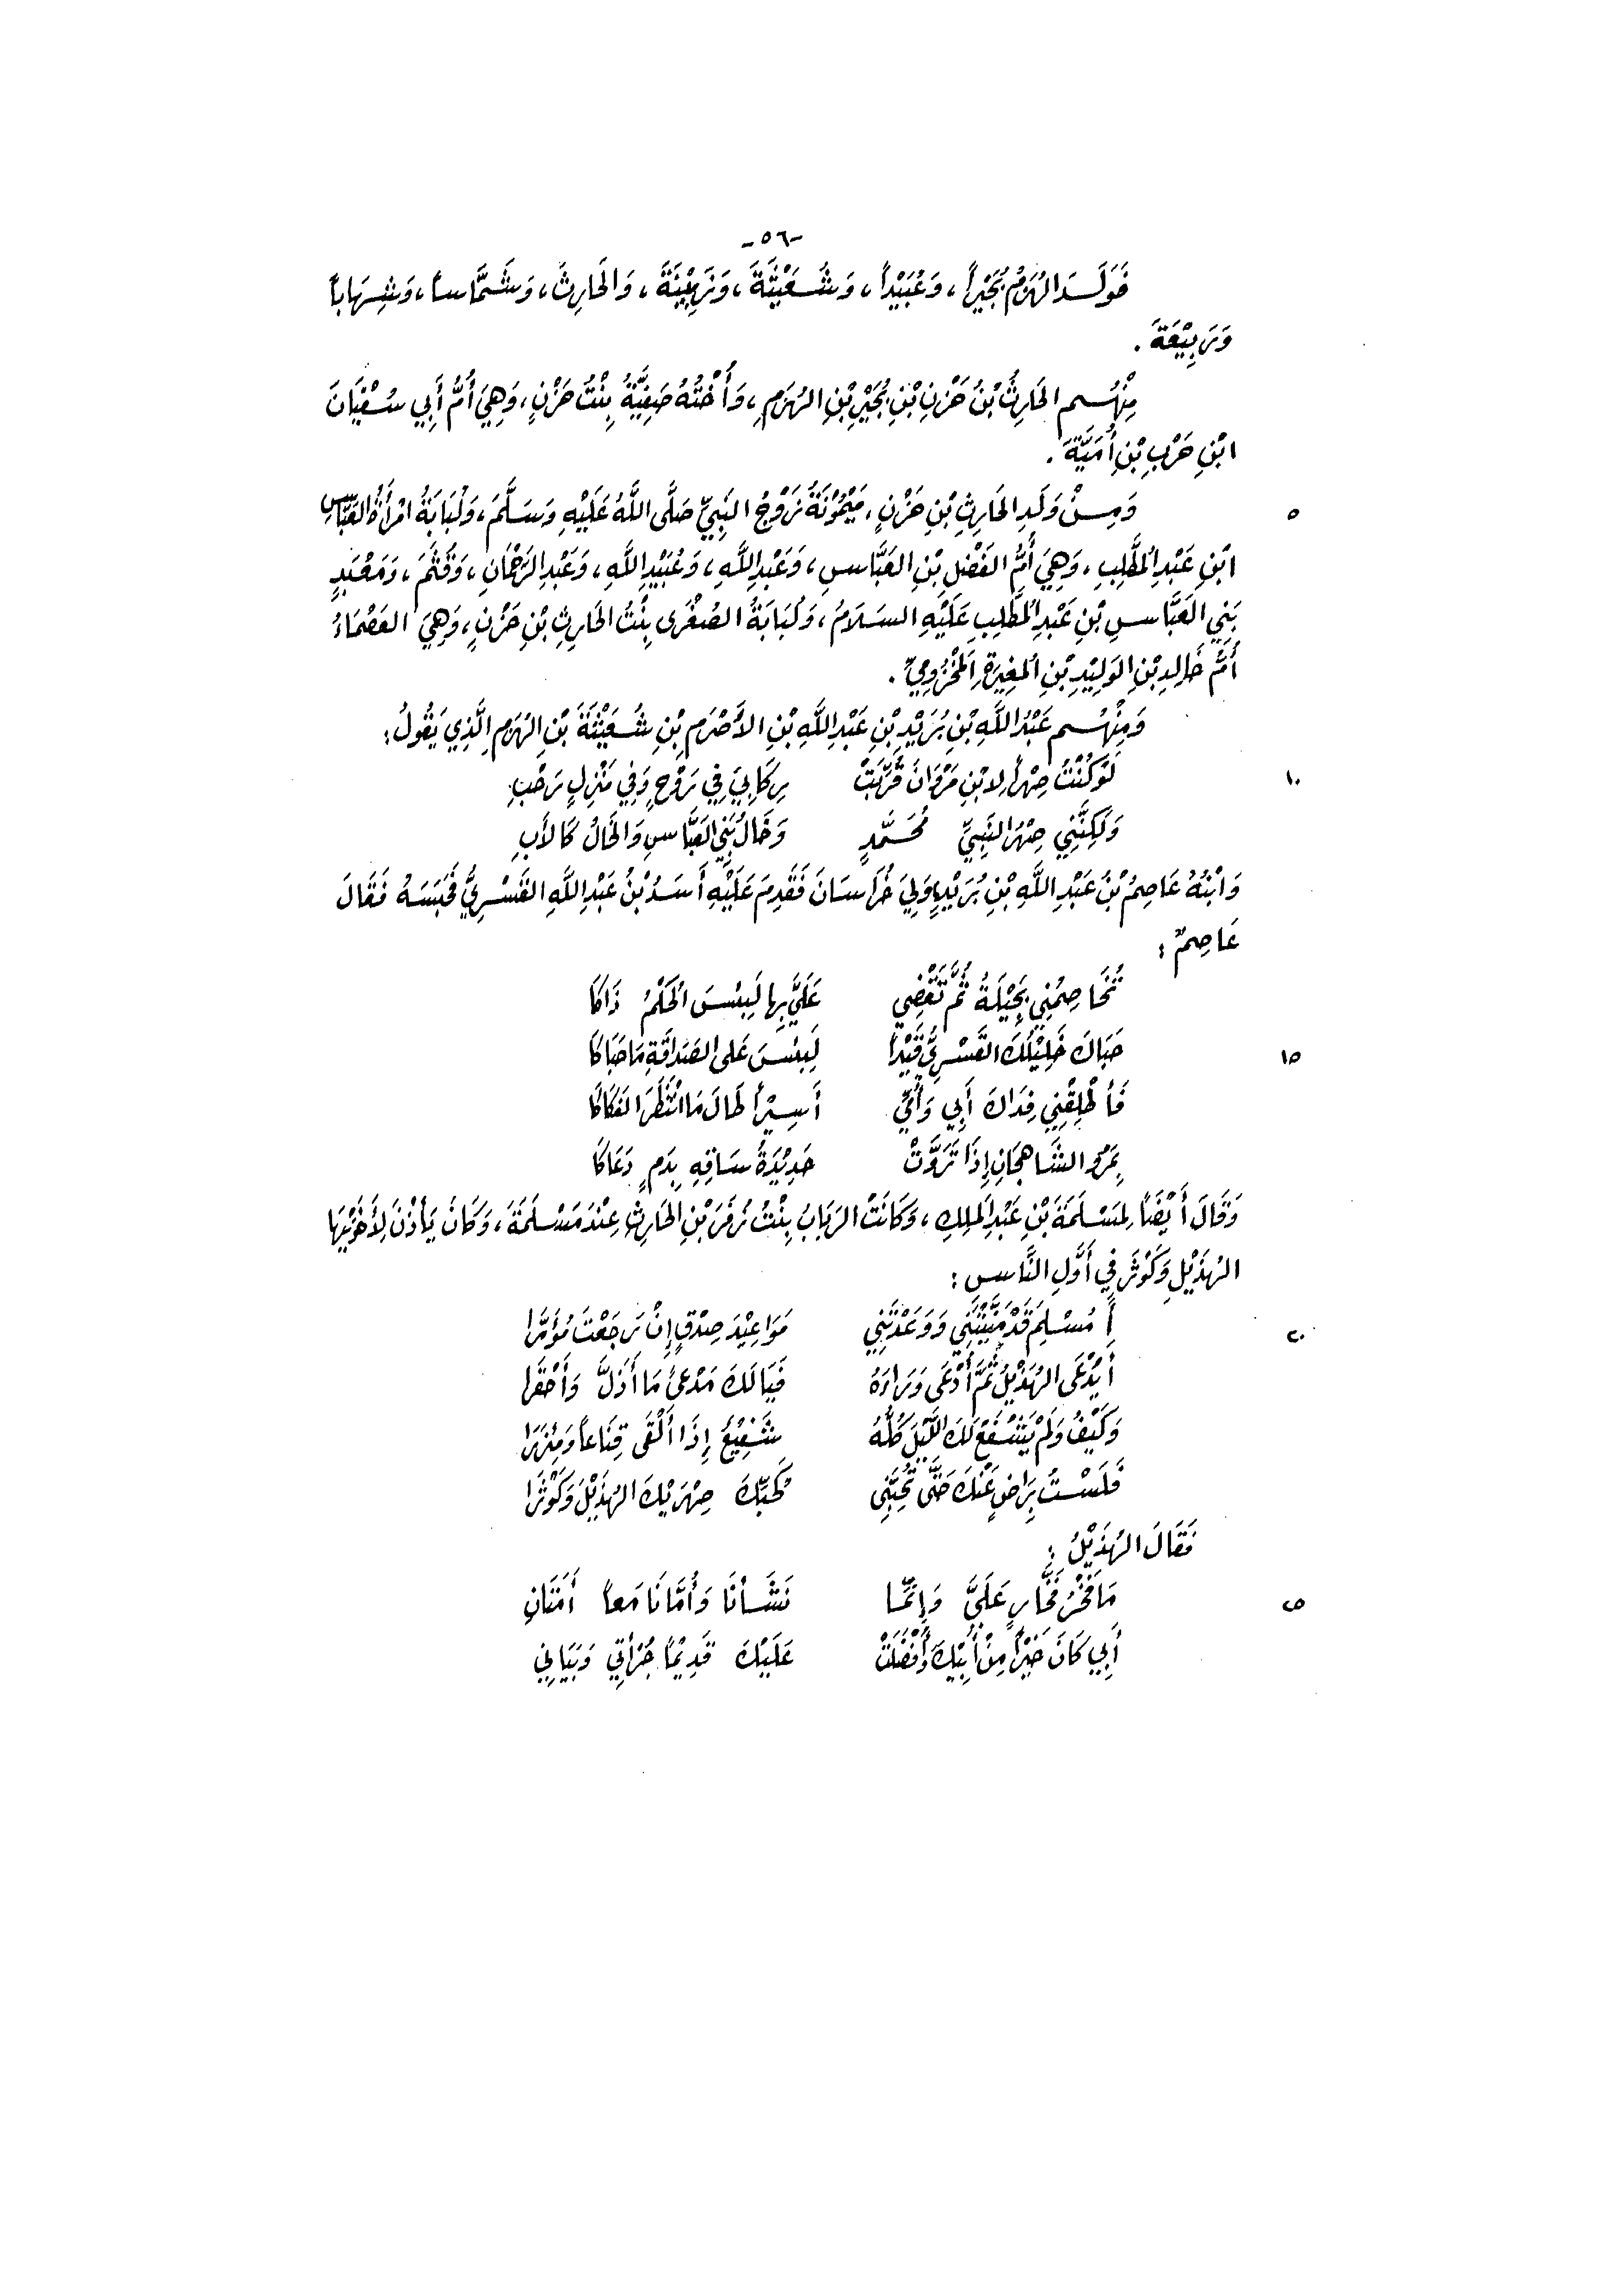 -٥٦-
فَوَلَدَ الهُزَمُ بُجَيْراً، وَعُبَيْداً، وَشُعَيْثَةَ، وَرَهِيْنَةَ، وَالحَارِثَ، وَشَمَّاساً، وَشِهَاباً
وَرَبِيْعَةَ .
مِنْهُم الحَارِثُ بْنُ حَزْنِ بْنِ بُجَيْرِ بْنِ الهُزَمِ، وَأُخْتُهُ صَفِيَّةُ بِنْتُ حَزْنٍ، وَهِيَ أُمُّ أَبِي سُفْيَانَ
ابْنِ حَرْبِ بْنِ أُمَيَّةَ .
٥ وَمِنْ وَلَدِ الحَارِثِ بْنِ حَزْنٍ، مَيْمُوْنَةُ زَوْجُ النَّبِيِّ صَلَّى اللَّهُ عَلَيْهِ وَسَلَّمَ، وَلُبَابَةُ امْرَأَةُ العَبَّاسِ
ابْنِ عَبْدِ المُطَّلِبِ، وَهِيَ أُمُّ الفَضْلِ بْنِ العَبَّاسِ، وَعَبْدِ اللَّهِ، وَعُبَيْدِ اللَّهِ، وَعَبْدِ الرَّحْمَانِ، وَقُثَمَ، وَمَعْبَدٍ
بَنِي العَبَّاسِ بْنِ عَبْدِ المُطَّلِبِ عَلَيْهِ السَلَامُ، وَلُبَابَةُ الصُغْرَى بِنْتُ الحَارِثِ بْنِ حَزْنٍ، وَهِيَ العَصْمَاءُ
أُمُّ خَالِدِ بْنِ الوَلِيْدِ بْنِ المُغِيْرَةِ المَخْزُومِيِّ .
وَمِنْهُم عَبْدُ اللَّهِ بْنِ يَزِيْدِ بْنِ عَبْدِ اللَّهِ بْنِ الأَصْرَمِ بْنِ شُعَيْثَةَ بْنِ الهُزَمِ الَّذِي يَقُولُ:
١٠ لَوْ كُنْتُ صِهْراً لِابْنِ مَرْوَانَ قُرِّبَتْ رِكَابِيَ فِي رَوْحٍ وَفِي مَنْزِلٍ رَحْبِ
وَلَكِنَّنِي صِهْرُ النَّبِيِّ مُحَمَّدٍ وَخَالُ بَنِي العَبَّاسِ وَالخَالُ كَالأَبِ
وَابْنُهُ عَاصِمُ بْنُ عَبْدِ اللَّهِ بْنِ يَزِيْدٍ وَلِيَ خُرَاسَانَ فَقَدِمَ عَلَيْهِ أَسَدُ بْنُ عَبْدِ اللَّهِ القَسْرِيُّ فَحَبَسَهُ فَقَالَ
عَاصِمٌ :
تُخَاصِمُنِي بَجِيْلَةُ ثُمَّ تَقْضِي عَلَيَّ بِهَا لَبِئْسَ الحَكْمُ ذَاكَا
١٥ حَبَاكَ خَلِيْلُكَ القَسْرِيُّ قَيْداً لَبِئْسَ عَلَى الصَدَاقَةِ مَا حَبَاكَا
فَأَطْلِقْنِي فِدَاكَ أَبِي وَأُمِّي أَسِيْراً طَالَ مَا انْتَظَرَ الفَكَاكَا
بِمَرْوِ الشَاهِجَانِ إِذَا تَرَوَّتْ حَدِيْدَةُ سَاقِهِ بِدَمٍ دَعَاكَا
وَقَالَ أَيْضاً لِمَسْلَمَةَ بْنِ عَبْدِ المَلِكِ، وَكَانَتْ الرَبَابُ بِنْتُ زُفَرَ بْنِ الحَارِثِ عِنْدَ مَسْلَمَةَ، وَكَانَ يَأْذَنُ لِأَخَوَيْهَا
الهُذَيْلِ وَكَوْثَرَ فِي أَوَّلِ النَّاسِ :
٢٠ أَمُسْلِمَ قَدْ مَنَّيْتَنِي وَوَعَدْتَنِي مَوَاعِيْدَ صِدْقٍ إِنْ رَجَعْتَ مُؤَمَّرا
أَيُدْعَى الهُذَيْلُ ثُمَّ أُدْعَى وَرَاءَهُ فَيَالَكَ مَدْعىً مَا أَذَلَّ وَأَحْقَرا
وَكَيْفَ وَلَمْ يَشْفَعْ لَكَ اللَّيْلَ كُلَّهُ شَفِيْعٌ إِذَا أَلْقَى قِنَاعاً وَمِئْزَرَا
فَلَسْتُ بِرَاضٍ عَنْكَ حَتَّى تُحِبَّنِي كَحُبِّكَ صِهْرَيْكَ الهُذَيْلَ وَكَوْثَرَا
فَقَالَ الهُذَيْلُ :
٢٥ مَا فَخْرُ فَخَّارٍ عَلَيَّ وَإِنَّمَا نَشَأْنَا وَأُمَّانَا مَعاً أَمَتَانِ
أَبِي كَانَ خَيْراً مِنْ أَبِيْكَ وَأَفْضَلَتْ عَلَيْكَ قَدِيْماً جُرْأَتِي وَبَيَانِي